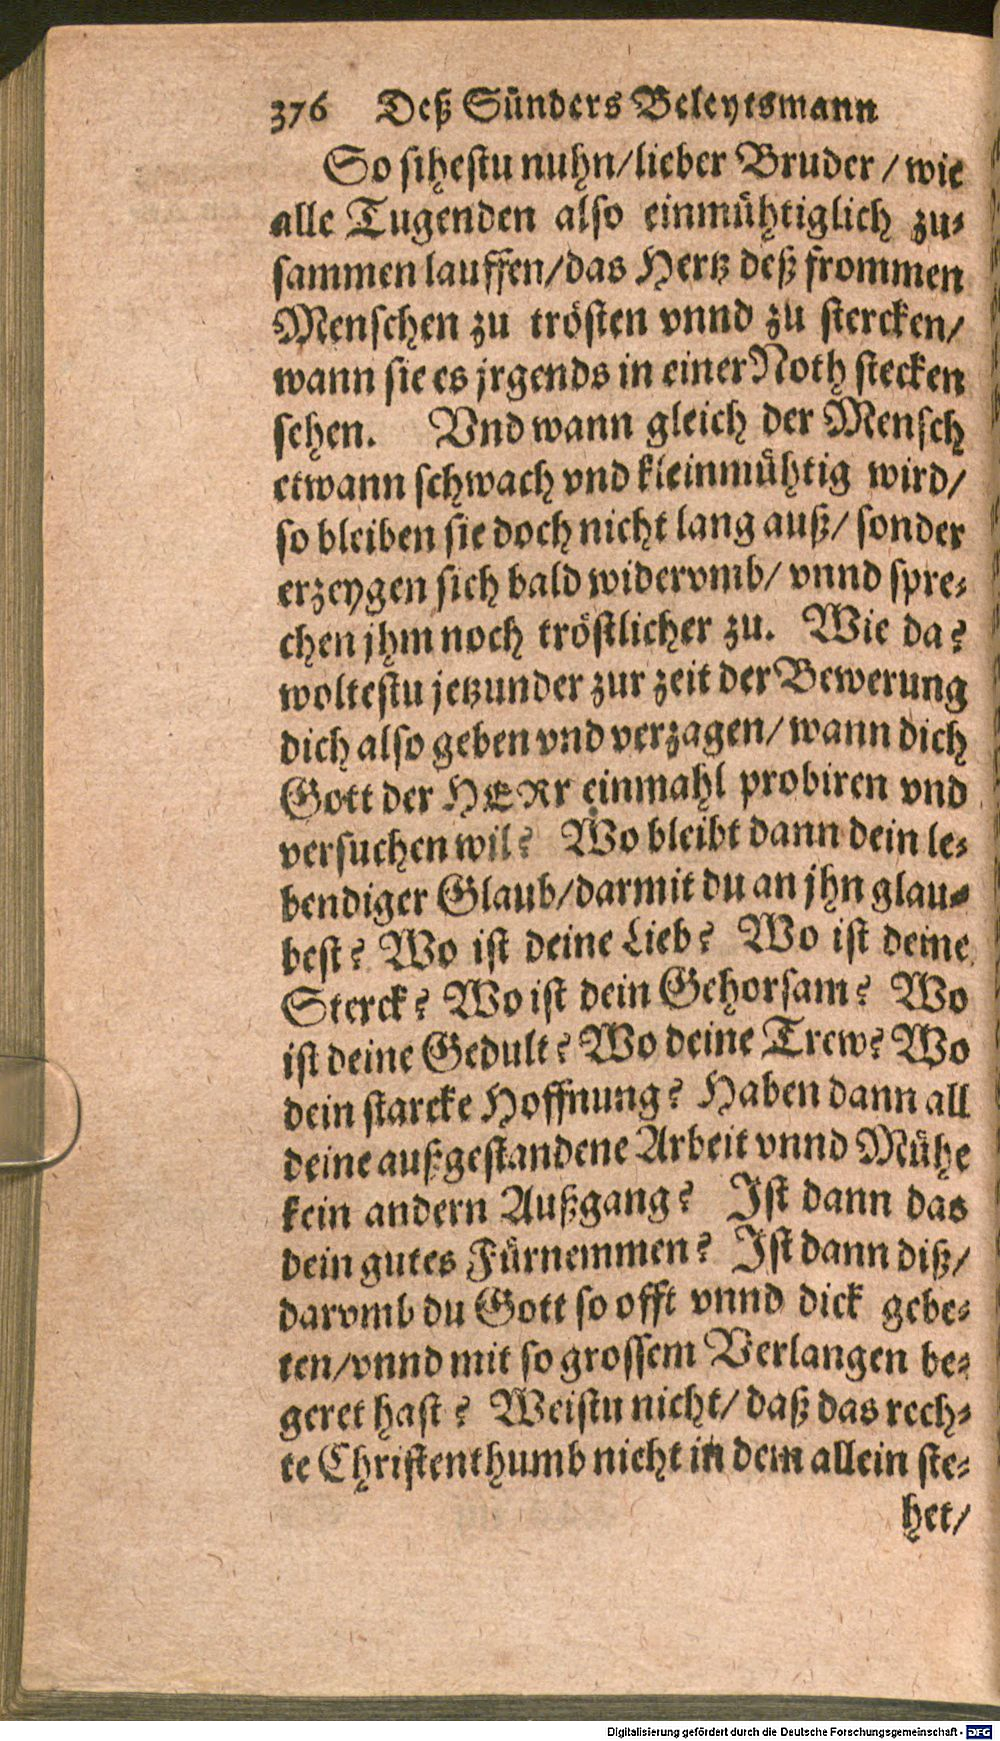 376 Deß Sünders Beleytsmann
So sihestu nuhn/lieber Bruder / wie
alle Tugenden also einmühtiglich zu-
sammen lauffen/das Hertz deß frommen
Menschen zu trösten vnnd zu stercken/
wann sie es jrgends in einer Noth stecken
sehen. Vnd wann gleich der Mensch
etwann schwach vnd kleinmühtig wird/
so bleiben sie doch nicht lang auß/ sonder
erzeygen sich bald widervmb/ vnnd spre-
chen jhm noch tröstlicher zu. Wie da?
woltestu jetzunder zur zeit der Bewerung
dich also geben vnd verzagen/ wann dich
Gott der HERr einmahl probiren vnd
versuchen wil? Wo bleibt dann dein le-
bendiger Glaub/darmit du an jhn glau-
best? Wo ist deine Lieb? Wo ist deine
Sterck? Wo ist dein Gehorsam? Wo
ist deine Gedult? Wo deine Trew? Wo
dein starcke Hoffnung? Haben dann all
deine außgestandene Arbeit vnnd Mühe
kein andern Außgang? Ist dann das
dein gutes Fürnemmen? Ist dann diß/
darvmb du Gott so offt vnnd dick gebe-
ten/vnnd mit so grossem Verlangen be-
geret hast? Weistu nicht/ daß das rech-
te Christenthumb nicht in dem allein ste-
het/
Digitalisierung gefördert durch die Deutsche Forschungsgemeinschaft - DFG